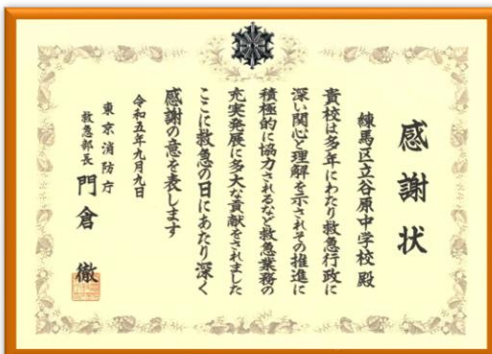 感謝状
練馬区立谷原中学校 殿
貴校は多年にわたり救急行政に
深い関心と理解を示されその推進に
積極的に協力されるなど救急業務の
充実発展に多大な貢献をされました
ここに救急の日にあたり深く
感謝の意を表します
令和五年九月九日
東京消防庁
救急部長 門倉 徹